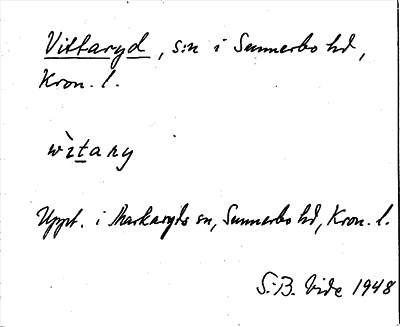 Vittaryd, s:n i Sunnerbo hd,
Kron. l.
wìtary
Uppt. i Markaryds sn, Sunnerbo hd, Kron. l.
S:B. Vide 1948